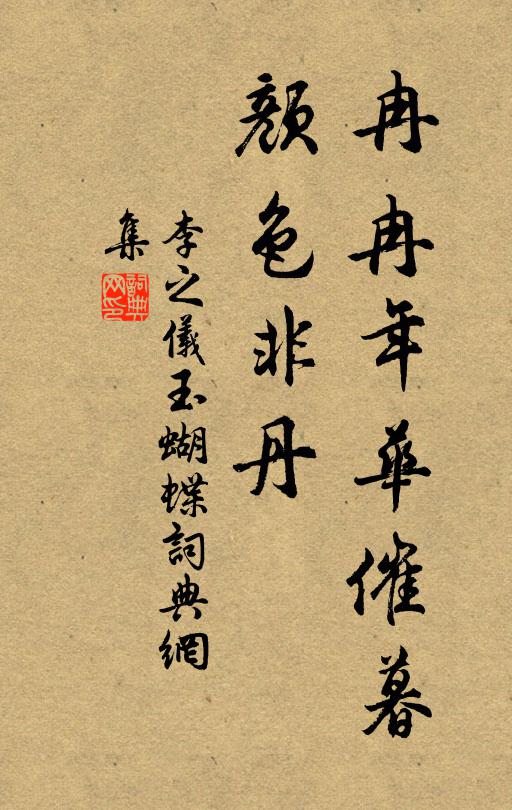 冉冉年華催暮
顏色非丹
李之儀玉蝴蝶詞典網
集
詞典网印